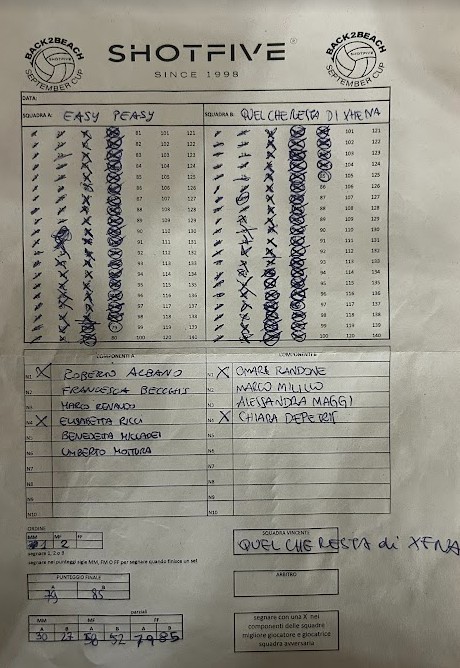 BACK2BEACH
SEPTEMBER CUP
SHOTFIVE®
SINCE 1998
BACK2BEACH
SEPTEMBER CUP
DATA:
SQUADRA A: EASY PEASY
SQUADRA B: QUEL CHE RESTA DI XHENA
81 101 121 101 121
82 102 122 102 122
83 103 123 103 123
84 104 124 104 124
85 105 125 105 125
86 106 126 86 106 126
87 107 127 87 107 127
88 108 128 88 108 128
89 109 129 89 109 129
90 110 130 90 110 130
91 111 131 91 111 131
92 112 132 92 112 132
93 113 133 93 113 133
94 114 134 94 114 134
95 115 135 95 115 135
96 116 136 96 116 136
97 117 137 97 117 137
98 118 138 98 118 138
99 119 139 99 119 139
80 100 120 140 100 120 140
COMPONENTI A
COMPONENTI B
N1 X ROBERTO ALBANO
N1 X OMAR RANDONE
N2 FRANCESCA BECCHIS
N2 MARCO MILILLO
N3 MARCO RENAUDI
N3 ALESSANDRA MAGGI
N4 X ELISABETTA RICCI
N4 X CHIARA DEPERTI
N5 BENEDETTA
N5
N6 UMBERTO MOTTURA
N6
N7
N7
N8
N8
N9
N9
N10
N10
ORDINE
MM MF FF
1 2
segnare 1, 2 o 3
segnare nei punteggi sigle MM, FM O FF per segnare quando finisce un set
SQUADRA VINCENTE
QUEL CHE RESTA di XENA
PUNTEGGIO FINALE
A B
79 85
ARBITRO
parziali
MM MF FF
A B A B A B
30 27 52 79 85
segnare con una X nei
componenti delle squadre
migliore giocatore e giocatrice
squadra avversaria